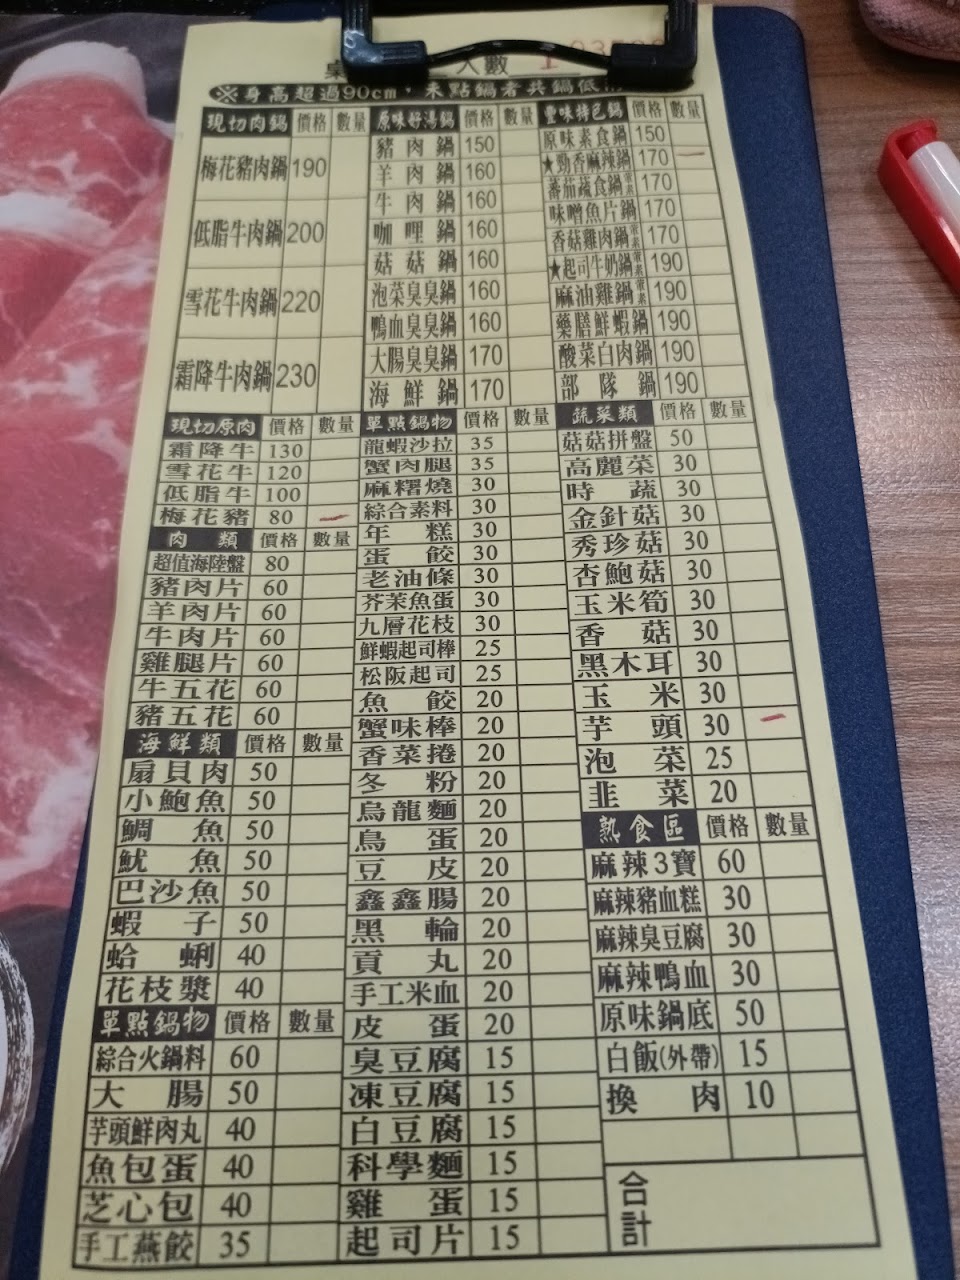 人數 1
※身高超過90cm，未點鍋者共鍋低
現切肉鍋 價格 數量
梅花豬肉鍋 190
低脂牛肉鍋 200
雪花牛肉鍋 220
霜降牛肉鍋 230
原味好湯鍋 價格 數量
豬肉鍋 150
羊肉鍋 160
牛肉鍋 160
咖哩鍋 160
菇菇鍋 160
泡菜臭臭鍋 160
鴨血臭臭鍋 160
大腸臭臭鍋 170
海鮮鍋 170
豐味特色鍋 價格 數量
原味素食鍋 150
★勁香麻辣鍋 170 一
蕃茄蔬食鍋 170
味噌魚片鍋 170
香菇雞肉鍋 170
★起司牛奶鍋 190
麻油雞鍋 190
藥膳鮮蝦鍋 190
酸菜白肉鍋 190
部隊鍋 190
現切原肉 價格 數量
霜降牛 130
雪花牛 120
低脂牛 100
梅花豬 80 一
肉類 價格 數量
超值海陸盤 80
豬肉片 60
羊肉片 60
牛肉片 60
雞腿片 60
牛五花 60
豬五花 60
海鮮類 價格 數量
扇貝肉 50
小鮑魚 50
鯛魚 50
魷魚 50
巴沙魚 50
蝦子 50
蛤蜊 40
花枝漿 40
單點鍋物 價格 數量
綜合火鍋料 60
大腸 50
芋頭鮮肉丸 40
魚包蛋 40
芝心包 40
手工燕餃 35
單點鍋物 價格 數量
龍蝦沙拉 35
蟹肉腿 35
麻糬燒 30
綜合素料 30
年糕 30
蛋餃 30
老油條 30
芥茉魚蛋 30
九層花枝 30
鮮蝦起司棒 25
松阪起司 25
魚餃 20
蟹味棒 20
香菜捲 20
冬粉 20
烏龍麵 20
鳥蛋 20
豆皮 20
鑫鑫腸 20
黑輪 20
貢丸 20
手工米血 20
皮蛋 20
臭豆腐 15
凍豆腐 15
白豆腐 15
科學麵 15
雞蛋 15
起司片 15
蔬菜類 價格 數量
菇菇拼盤 50
高麗菜 30
時蔬 30
金針菇 30
秀珍菇 30
杏鮑菇 30
玉米筍 30
香菇 30
黑木耳 30
玉米 30
芋頭 30 一
泡菜 25
韭菜 20
熟食區 價格 數量
麻辣3寶 60
麻辣豬血糕 30
麻辣臭豆腐 30
麻辣鴨血 30
原味鍋底 50
白飯(外帶) 15
換肉 10
合計